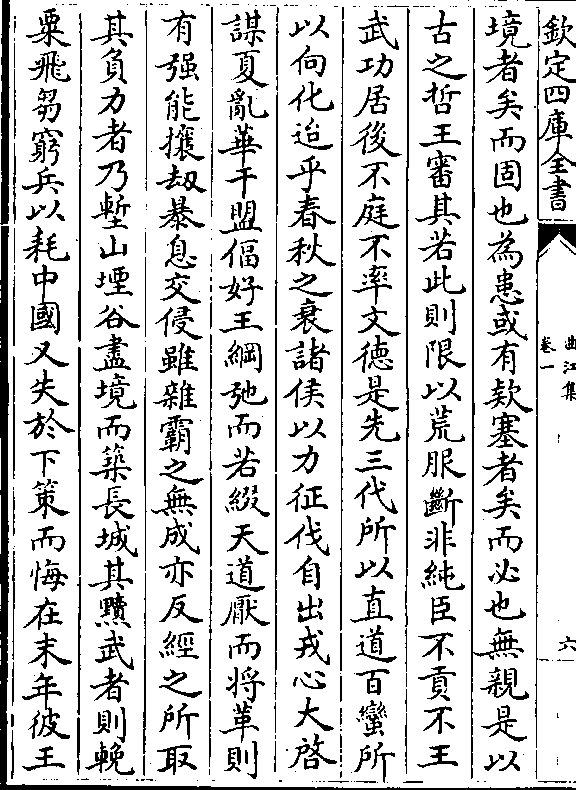 欽定四庫全書
曲江集
卷一
六
境者矣而固也為患或有欵塞者矣而必也無親是以
古之哲王審其若此則限以荒服斷非純臣不貢不王
武功居後不庭不率文德是先三代所以直道百蠻所
以向化迨乎春秋之衰諸侯以力征伐自出戎心大啓
謀夏亂華干盟偪好王綱弛而若綴天道厭而将革則
有强能攘刼暴息交侵雖雜霸之無成亦反經之所取
其負力者乃塹山堙谷盡境而築長城其黷武者則輓
粟飛芻窮兵以耗中國又失於下策而悔在末年彼王